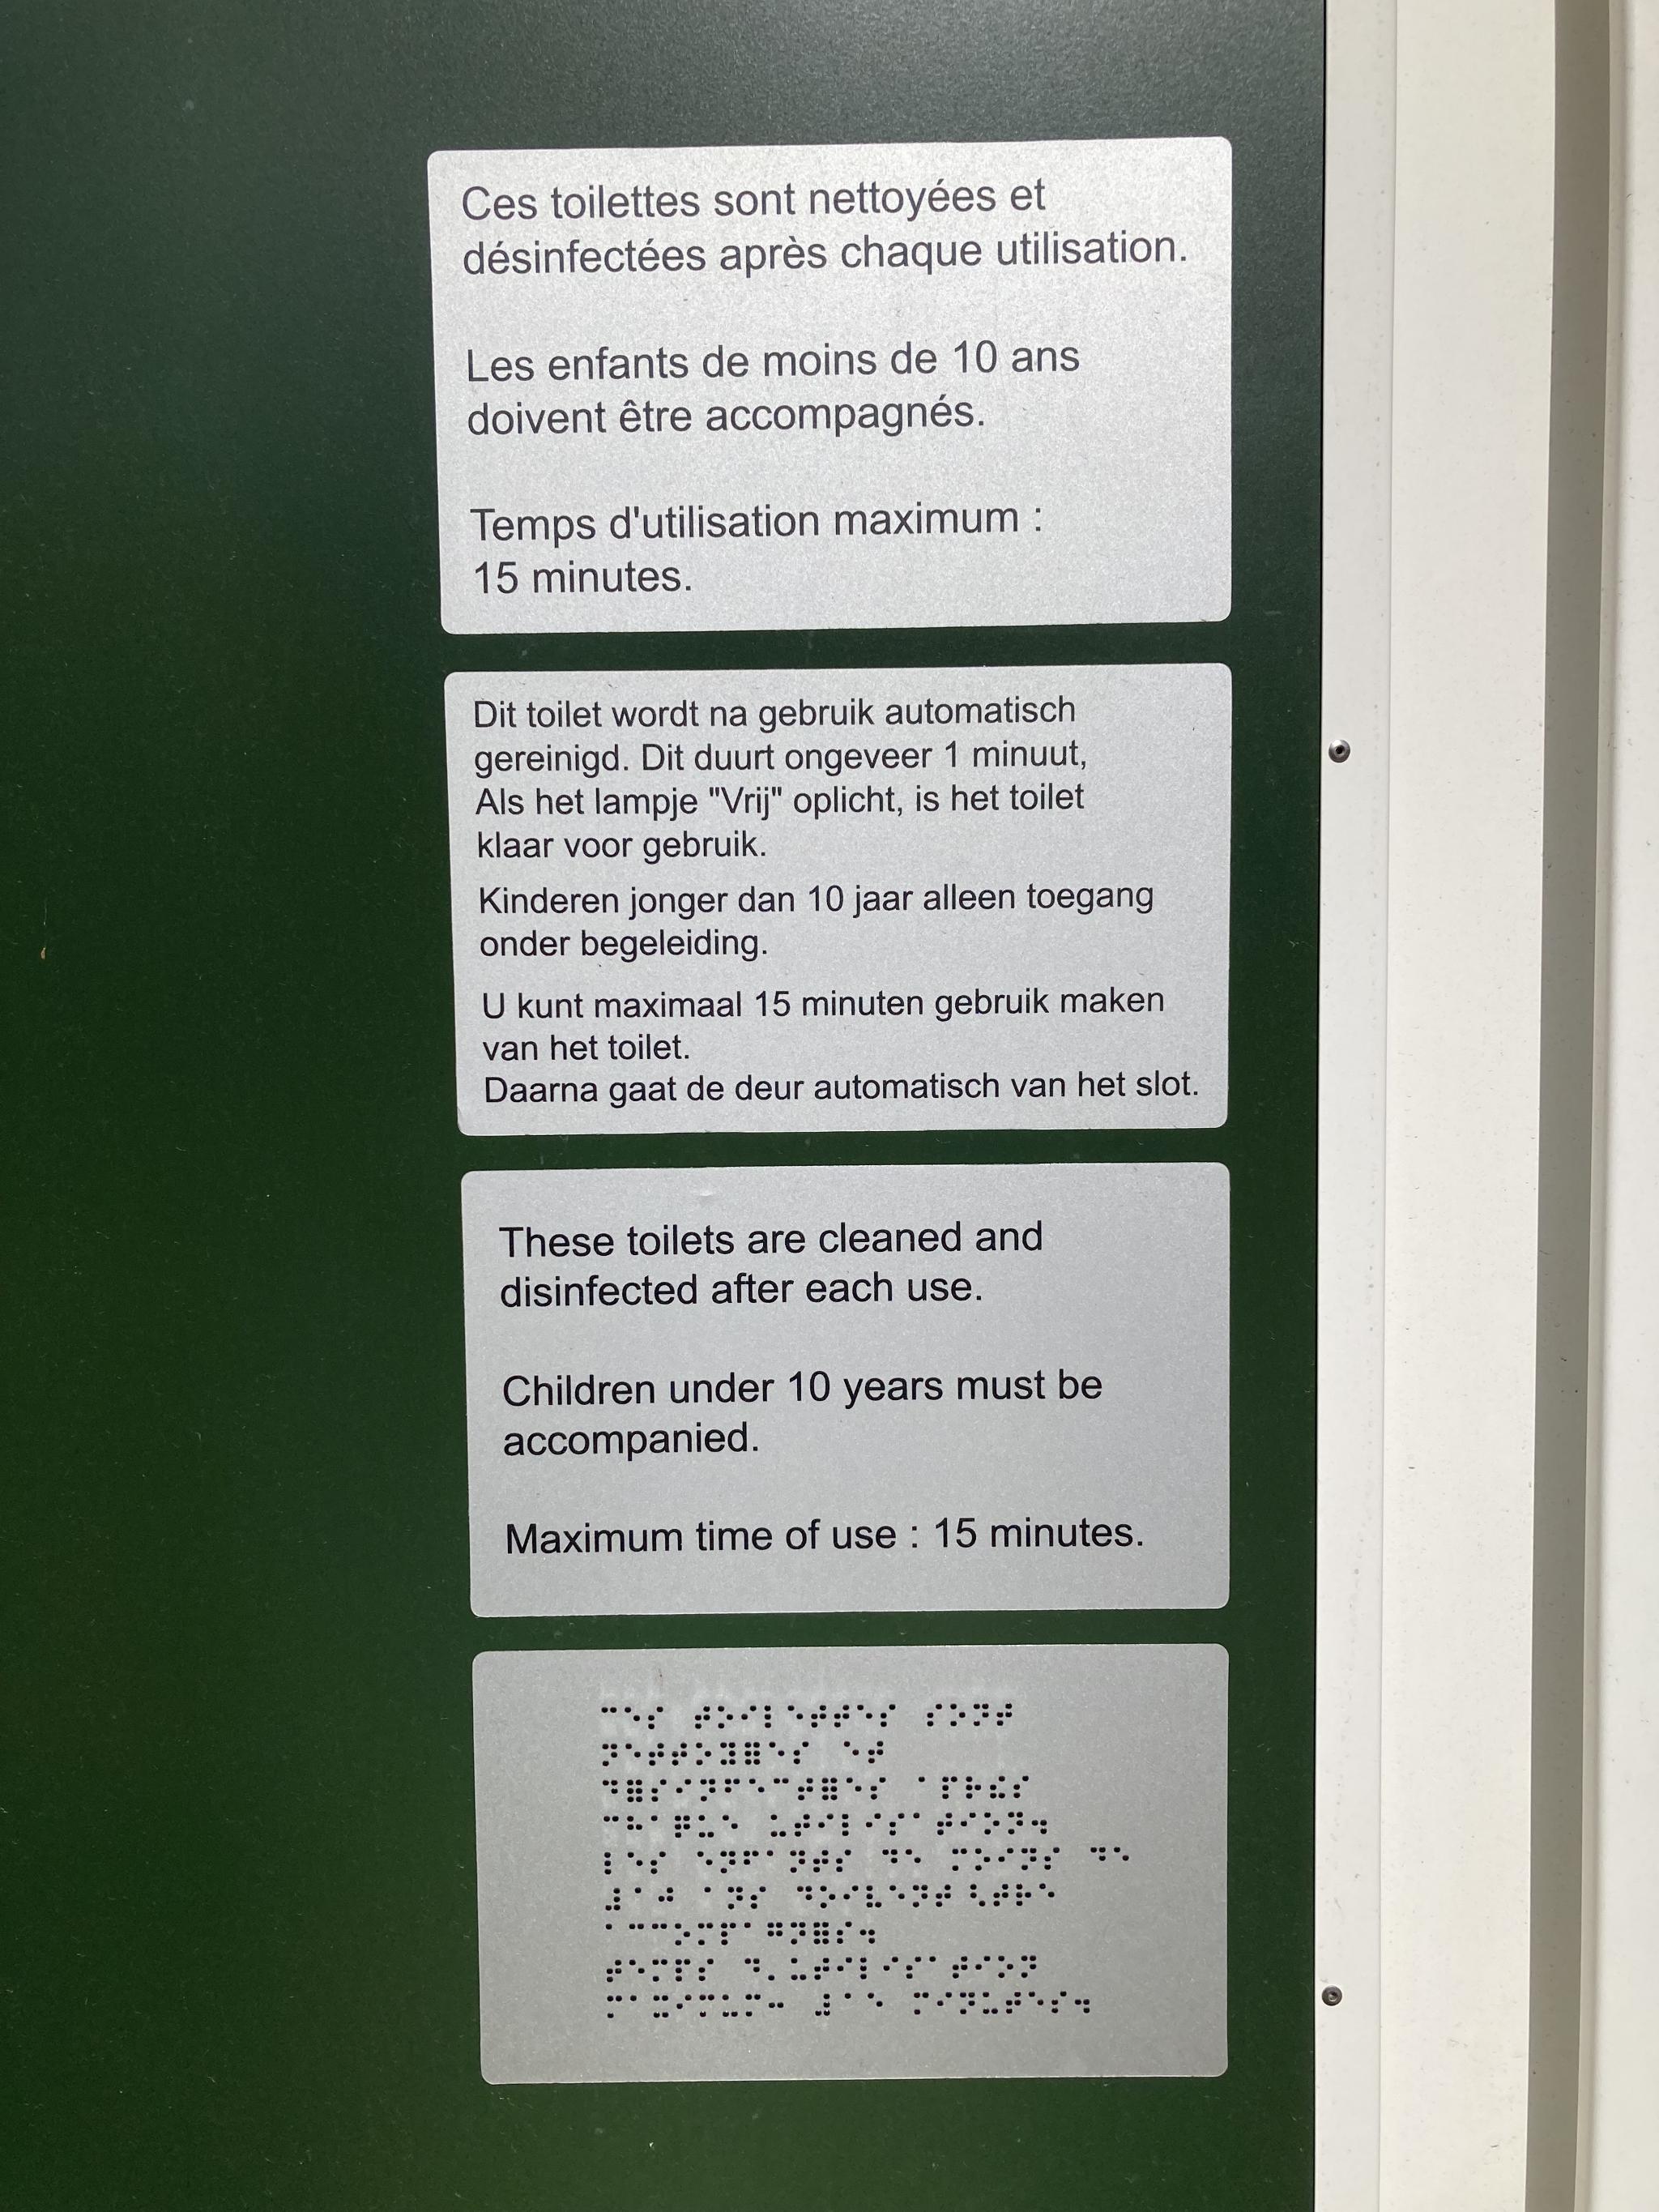 Ces toilettes sont nettoyées et
désinfectées après chaque utilisation.
Les enfants de moins de 10 ans
doivent être accompagnés.
Temps d'utilisation maximum :
15 minutes.
Dit toilet wordt na gebruik automatisch
gereinigd. Dit duurt ongeveer 1 minuut,
Als het lampje "Vrij" oplicht, is het toilet
klaar voor gebruik.
Kinderen jonger dan 10 jaar alleen toegang
onder begeleiding.
U kunt maximaal 15 minuten gebruik maken
van het toilet.
Daarna gaat de deur automatisch van het slot.
These toilets are cleaned and
disinfected after each use.
Children under 10 years must be
accompanied.
Maximum time of use : 15 minutes.
⠉⠑⠎ ⠞⠕⠊⠇⠑⠞⠞⠑⠎ ⠎⠕⠝⠞
⠝⠑⠞⠞⠕⠽⠿⠑⠎ ⠑⠞
⠙⠿⠎⠊⠝⠋⠑⠉⠞⠿⠑⠎ ⠁⠏⠗⠮⠎
⠉⠓⠁⠟⠥⠑ ⠥⠞⠊⠇⠊⠎⠁⠞⠊⠕⠝⠲
⠇⠑⠎ ⠑⠝⠋⠁⠝⠞⠎ ⠙⠑ ⠍⠕⠊⠝⠎ ⠙⠑
⠼⠁⠚ ⠁⠝⠎ ⠙⠕⠊⠧⠑⠝⠞ ⠣⠞⠗⠑
⠁⠉⠉⠕⠍⠏⠁⠛⠝⠿⠎⠲
⠞⠑⠍⠏⠎ ⠙⠄⠥⠞⠊⠇⠊⠎⠁⠞⠊⠕⠝
⠍⠁⠭⠊⠍⠥⠍⠒ ⠼⠁⠑ ⠍⠊⠝⠥⠞⠑⠎⠲